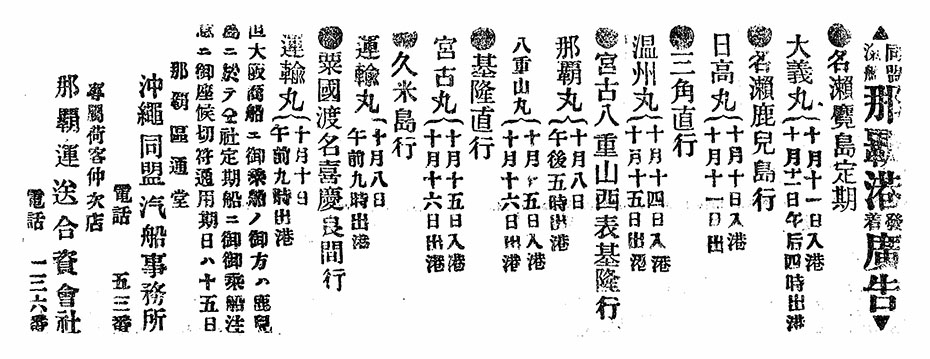 ▲同盟滊船那覇港發着廣告▼
●名瀨鹿兒島定期
大義丸 十月十一日入港
十月十二日午后四時出港
●名瀨鹿兒島行
日高丸 十月十日入港
十月十一日出
●三角直行
温州丸 十月十四日入港
十月十五日出港
●宮古八重山西表基隆行
那覇丸 十月八日
午後五時出港
八重山丸 十月十五日入港
十月十六日出港
●基隆直行
宮古丸 十月十五日入港
十月十六日出港
●久米島行
運輸丸 十月八日
午前九時出港
●粟國渡名喜慶良間行
運輸丸 十月十日
午前九時出港
大阪商船ニ御乘船ノ御方ハ鹿兒
島ニ於テ仝社定期船ニ御乘船注
意ニ御座候切符通用期日ハ十五日
那覇區通堂
沖繩同盟汽船事務所
電話 五三番
專屬荷客仲次店
那覇運送合資會社
電話 一三六番